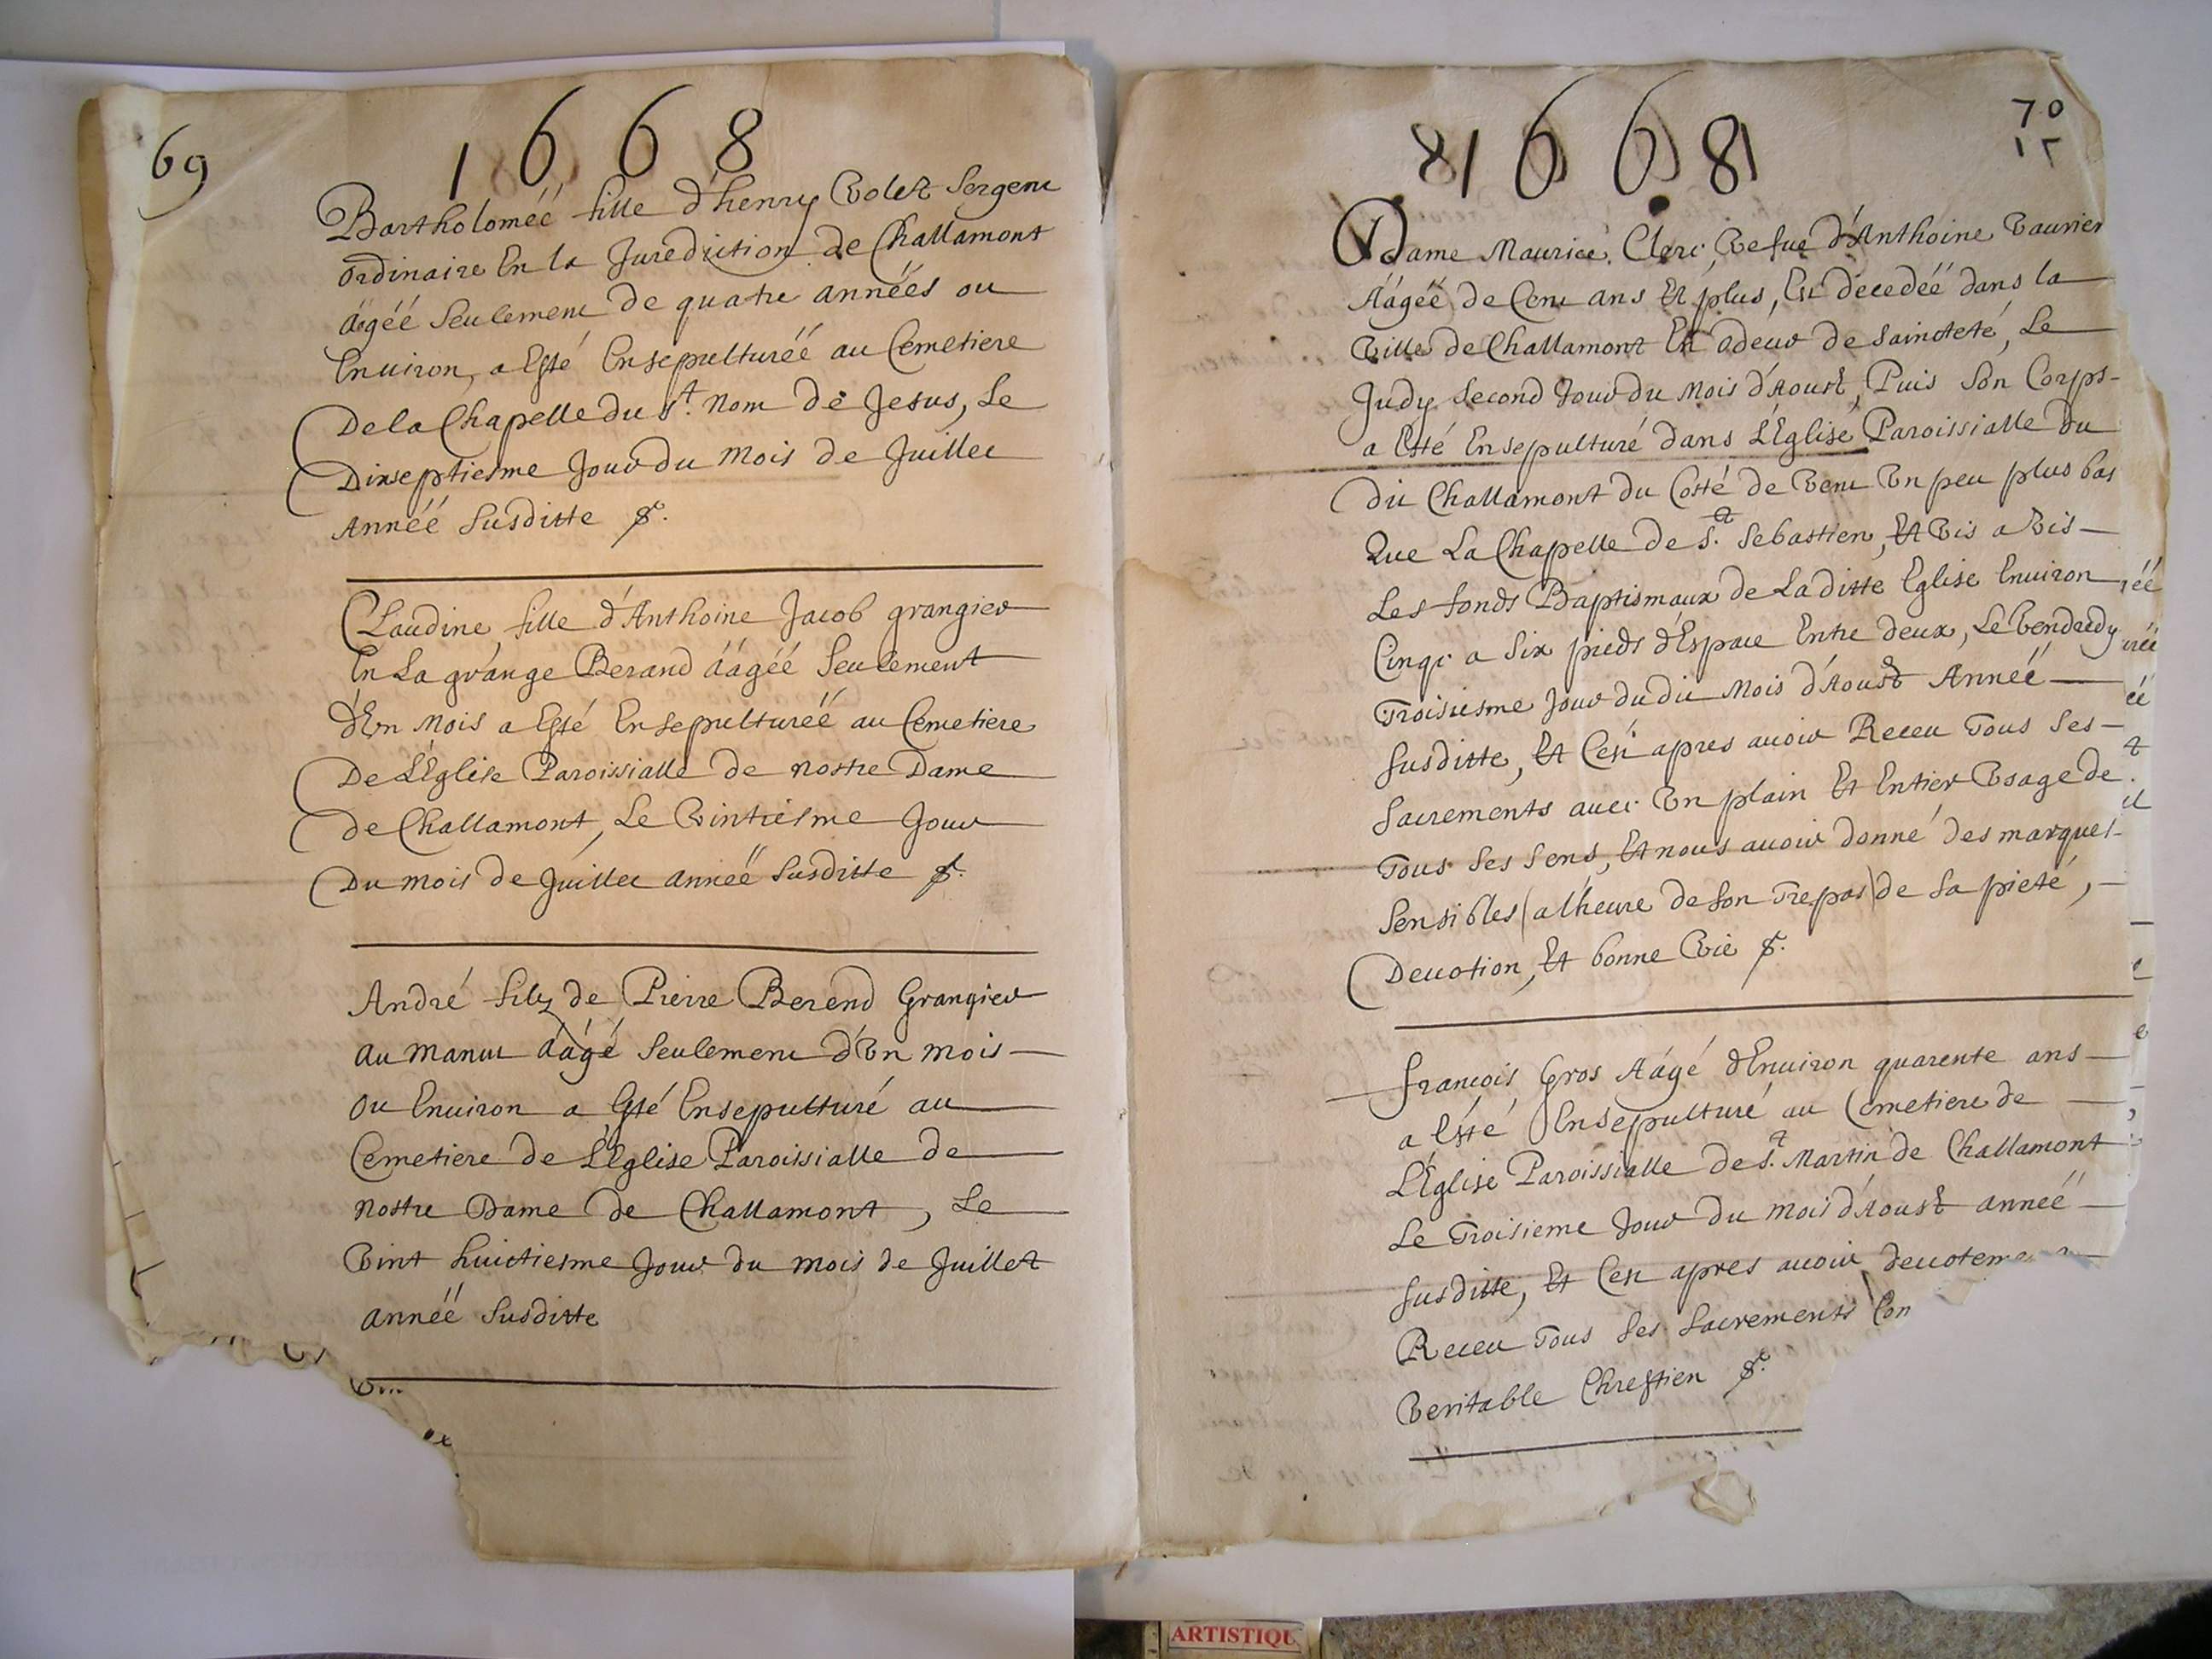 69
1668
Bartholoméé fille d'henry Volet Sergent
ordinaire En la Jurediction de Challamont
áagéé Seulement de quatre annéés ou
Enuiron, a Esté Ensepulturéé au Cemetiere
De la Chapelle du St. Nom de Jesus, Le
Dixseptiesme Jour du Mois de Juillet
Annéé Susditte &c.
Claudine fille d'Anthoine Jacob grangier
En La grange Berand áágéé Seulement
d'Vn Mois a Esté Ensepulturéé au Cemetiere
De L'Eglise Paroissialle de nostre Dame
de Challamont, Le Vintiesme Jour
Du mois de Juillet annéé Susditte &c.
André filz de Pierre Berend Grangier
au áágé Seulement d'Vn mois
ou Enuiron a Esté Ensepulturé au
Cemetiere de L'Eglise Paroissialle de
nostre Dame de Challamont, Le
Vint huictiesme Jour du mois de Juillet
annéé Susditte
70
1668
Dame Maurice Clerc Vefue d'Anthoine Vaurier
Aágéé de Cent ans Et plus, Est décedéé dans la
Ville de Challamont En odeur de saincteté, Le
Judy Second Jour du Mois d'Aoust, Puis Son Corps
a Esté Ensepulturé dans L'Eglise Paroissialle du
dit Challamont du Costé de Vent Vn peu plus bas
Que La Chapelle de St. Sebastien, Et Vis a Vis
Les fonds Baptismaux de Laditte Eglise Enuiron
Cinqc a Six pieds d'Espace Entre deux, Le Vendredy
Troisiesme Jour dudit Mois d'Aoust Annéé
Susditte, Et Cest apres auoir Receu Tous Ses
Sacrements auec Vn plain Et Entier Vsage de
Tous Ses Sens, Et nous auoir donné des marques
Sensibles (a l'heure de Son Trepas) de Sa pieté,
Deuotion, Et bonne Vie &c.
François Gros Aágé d'Enuiron quarente ans
a Esté Ensepulturé au Cemetiere de
L'Eglise Paroissialle de St. Martin de Challamont
Le Troisieme Jour du mois d'Aoust annéé
Susditte, Et Cest apres auoir
Receu Tous Ses Sacrements
Veritable Chrestien &c.
ARTISTIQU